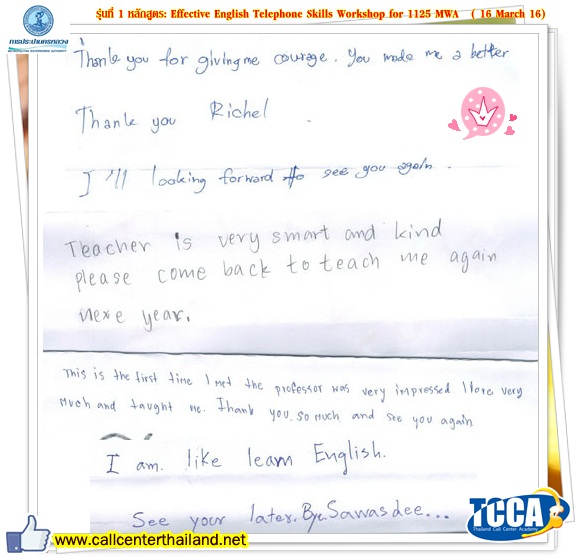 รุ่นที่ 1 หลักสูตร: Effective English Telephone Skills Workshop for 1125 MWA ( 16 March 16)
การประปานครหลวง
Thank you for giving me courage. You made me a better
Thank you Richel .
I'll looking forward to see you again .
Teacher is very smart and kind
please come back to teach me again
nexe year.
This is the first time I met the professor was very impressed I love very
much and taught me. Thank you so much and see you again
I am. like learn English.
See your later. Bye. Sawasdee...
www.callcenterthailand.net
TCCA
Thailand Call Center Academy